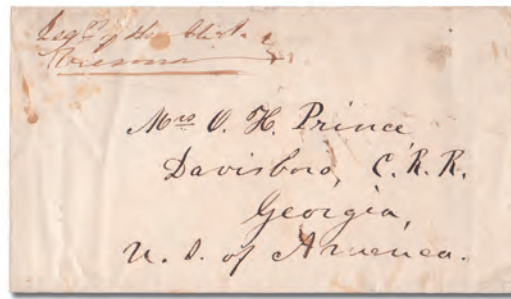 Mrs O. H. Prince,
Davisboro, C. R. R.
Georgia,
U. S. of America.